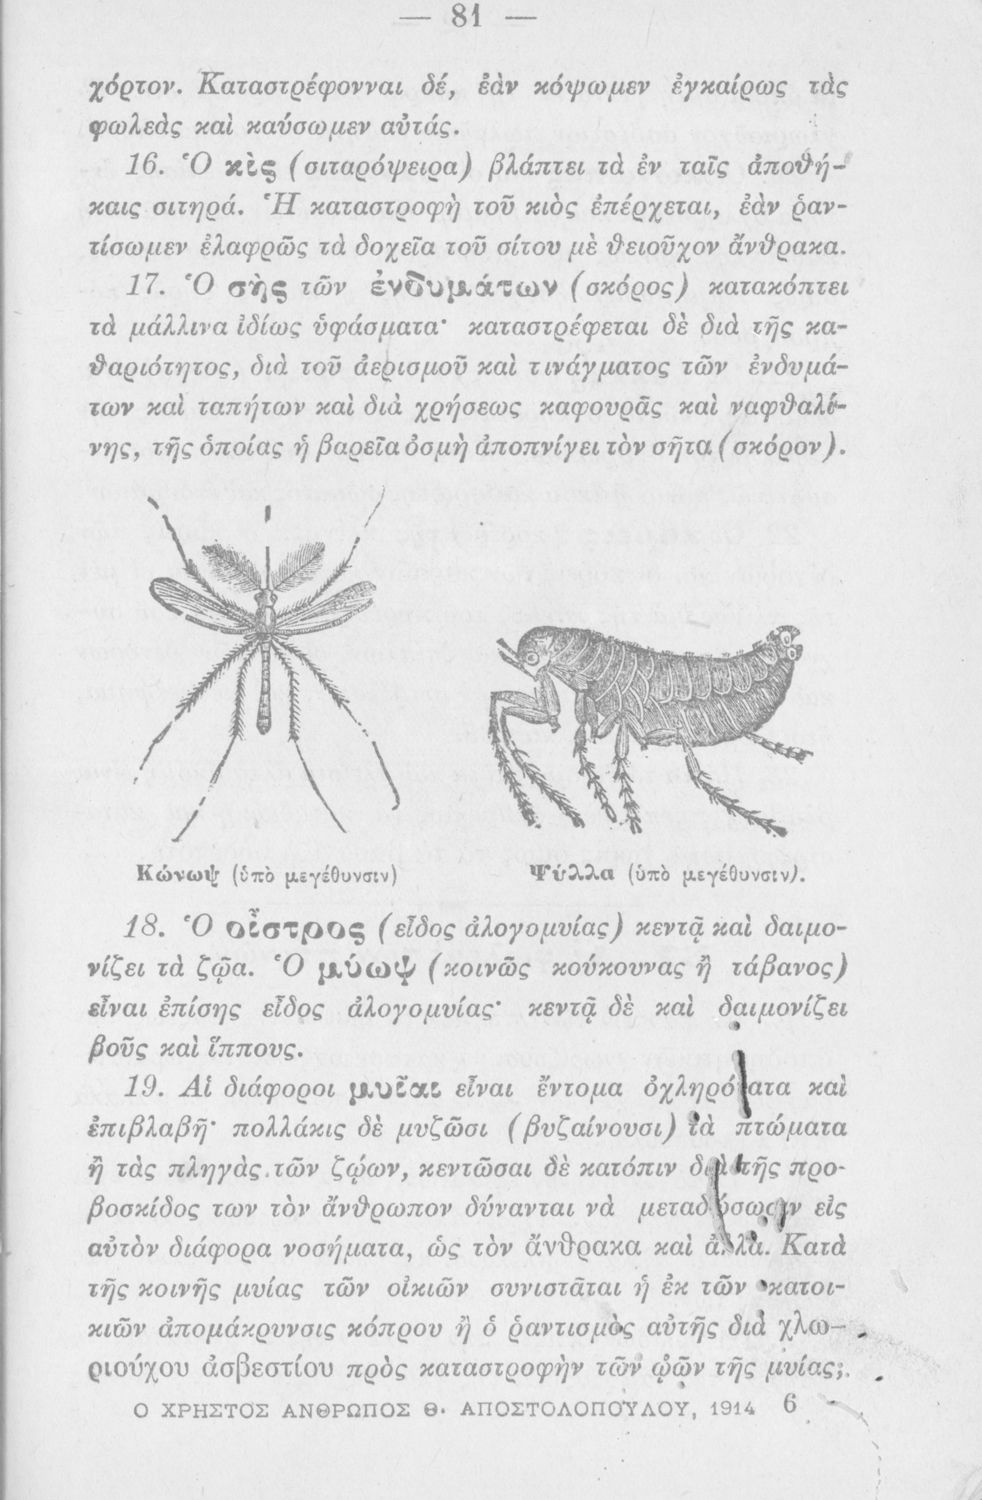 — 81 —
χόρτον. Καταστρέφονναι δέ, ἐὰν κόψωμεν ἐγκαίρως τὰς
φωλεὰς καὶ καύσωμεν αὐτάς.
16. Ὁ κὶς (σιταρόψειρα) βλάπτει τὰ ἐν ταῖς ἀποθή-
καις σιτηρά. Ἡ καταστροφὴ τοῦ κιὸς ἐπέρχεται, ἐὰν ῥαν-
τίσωμεν ἐλαφρῶς τὰ δοχεῖα τοῦ σίτου μὲ θειοῦχον ἄνθρακα.
17. Ὁ σὴς τῶν ἐνδυμάτων (σκόρος) κατακόπτει
τὰ μάλλινα ἰδίως ὑφάσματα· καταστρέφεται δὲ διὰ τῆς κα-
θαριότητος, διὰ τοῦ ἀερισμοῦ καὶ τινάγματος τῶν ἐνδυμά-
των καὶ ταπήτων καὶ διὰ χρήσεως καφουρᾶς καὶ ναφθαλί-
νης, τῆς ὁποίας ἡ βαρεῖα ὀσμὴ ἀποπνίγει τὸν σῆτα (σκόρον).
Κώνωψ (ὑπὸ μεγέθυνσιν)
Ψύλλα (ὑπὸ μεγέθυνσιν).
18. Ὁ οἶστρος (εἶδος ἀλογομυίας) κεντᾷ καὶ δαιμο-
νίζει τὰ ζῷα. Ὁ μύωψ (κοινῶς κούκουνας ἢ τάβανος)
εἶναι ἐπίσης εἶδος ἀλογομυίας· κεντᾷ δὲ καὶ δαιμονίζει
βοῦς καὶ ἵππους.
19. Αἱ διάφοροι μυῖαι εἶναι ἔντομα ὀχληρότατα καὶ
ἐπιβλαβῆ· πολλάκις δὲ μυζῶσι (βυζαίνουσι) τὰ πτώματα
ἢ τὰς πληγὰς τῶν ζῴων, κεντῶσαι δὲ κατόπιν διὰ τῆς προ-
βοσκίδος των τὸν ἄνθρωπον δύνανται νὰ μεταδώσωσιν εἰς
αὐτὸν διάφορα νοσήματα, ὡς τὸν ἄνθρακα καὶ ἄλλα. Κατὰ
τῆς κοινῆς μυίας τῶν οἰκιῶν συνιστᾶται ἡ ἐκ τῶν κατοι-
κιῶν ἀπομάκρυνσις κόπρου ἢ ὁ ῥαντισμὸς αὐτῆς διὰ χλω-
ριούχου ἀσβεστίου πρὸς καταστροφὴν τῶν ᾠῶν τῆς μυίας;.
Ο ΧΡΗΣΤΟΣ ΑΝΘΡΩΠΟΣ Θ. ΑΠΟΣΤΟΛΟΠΟΥΛΟΥ, 1914 6